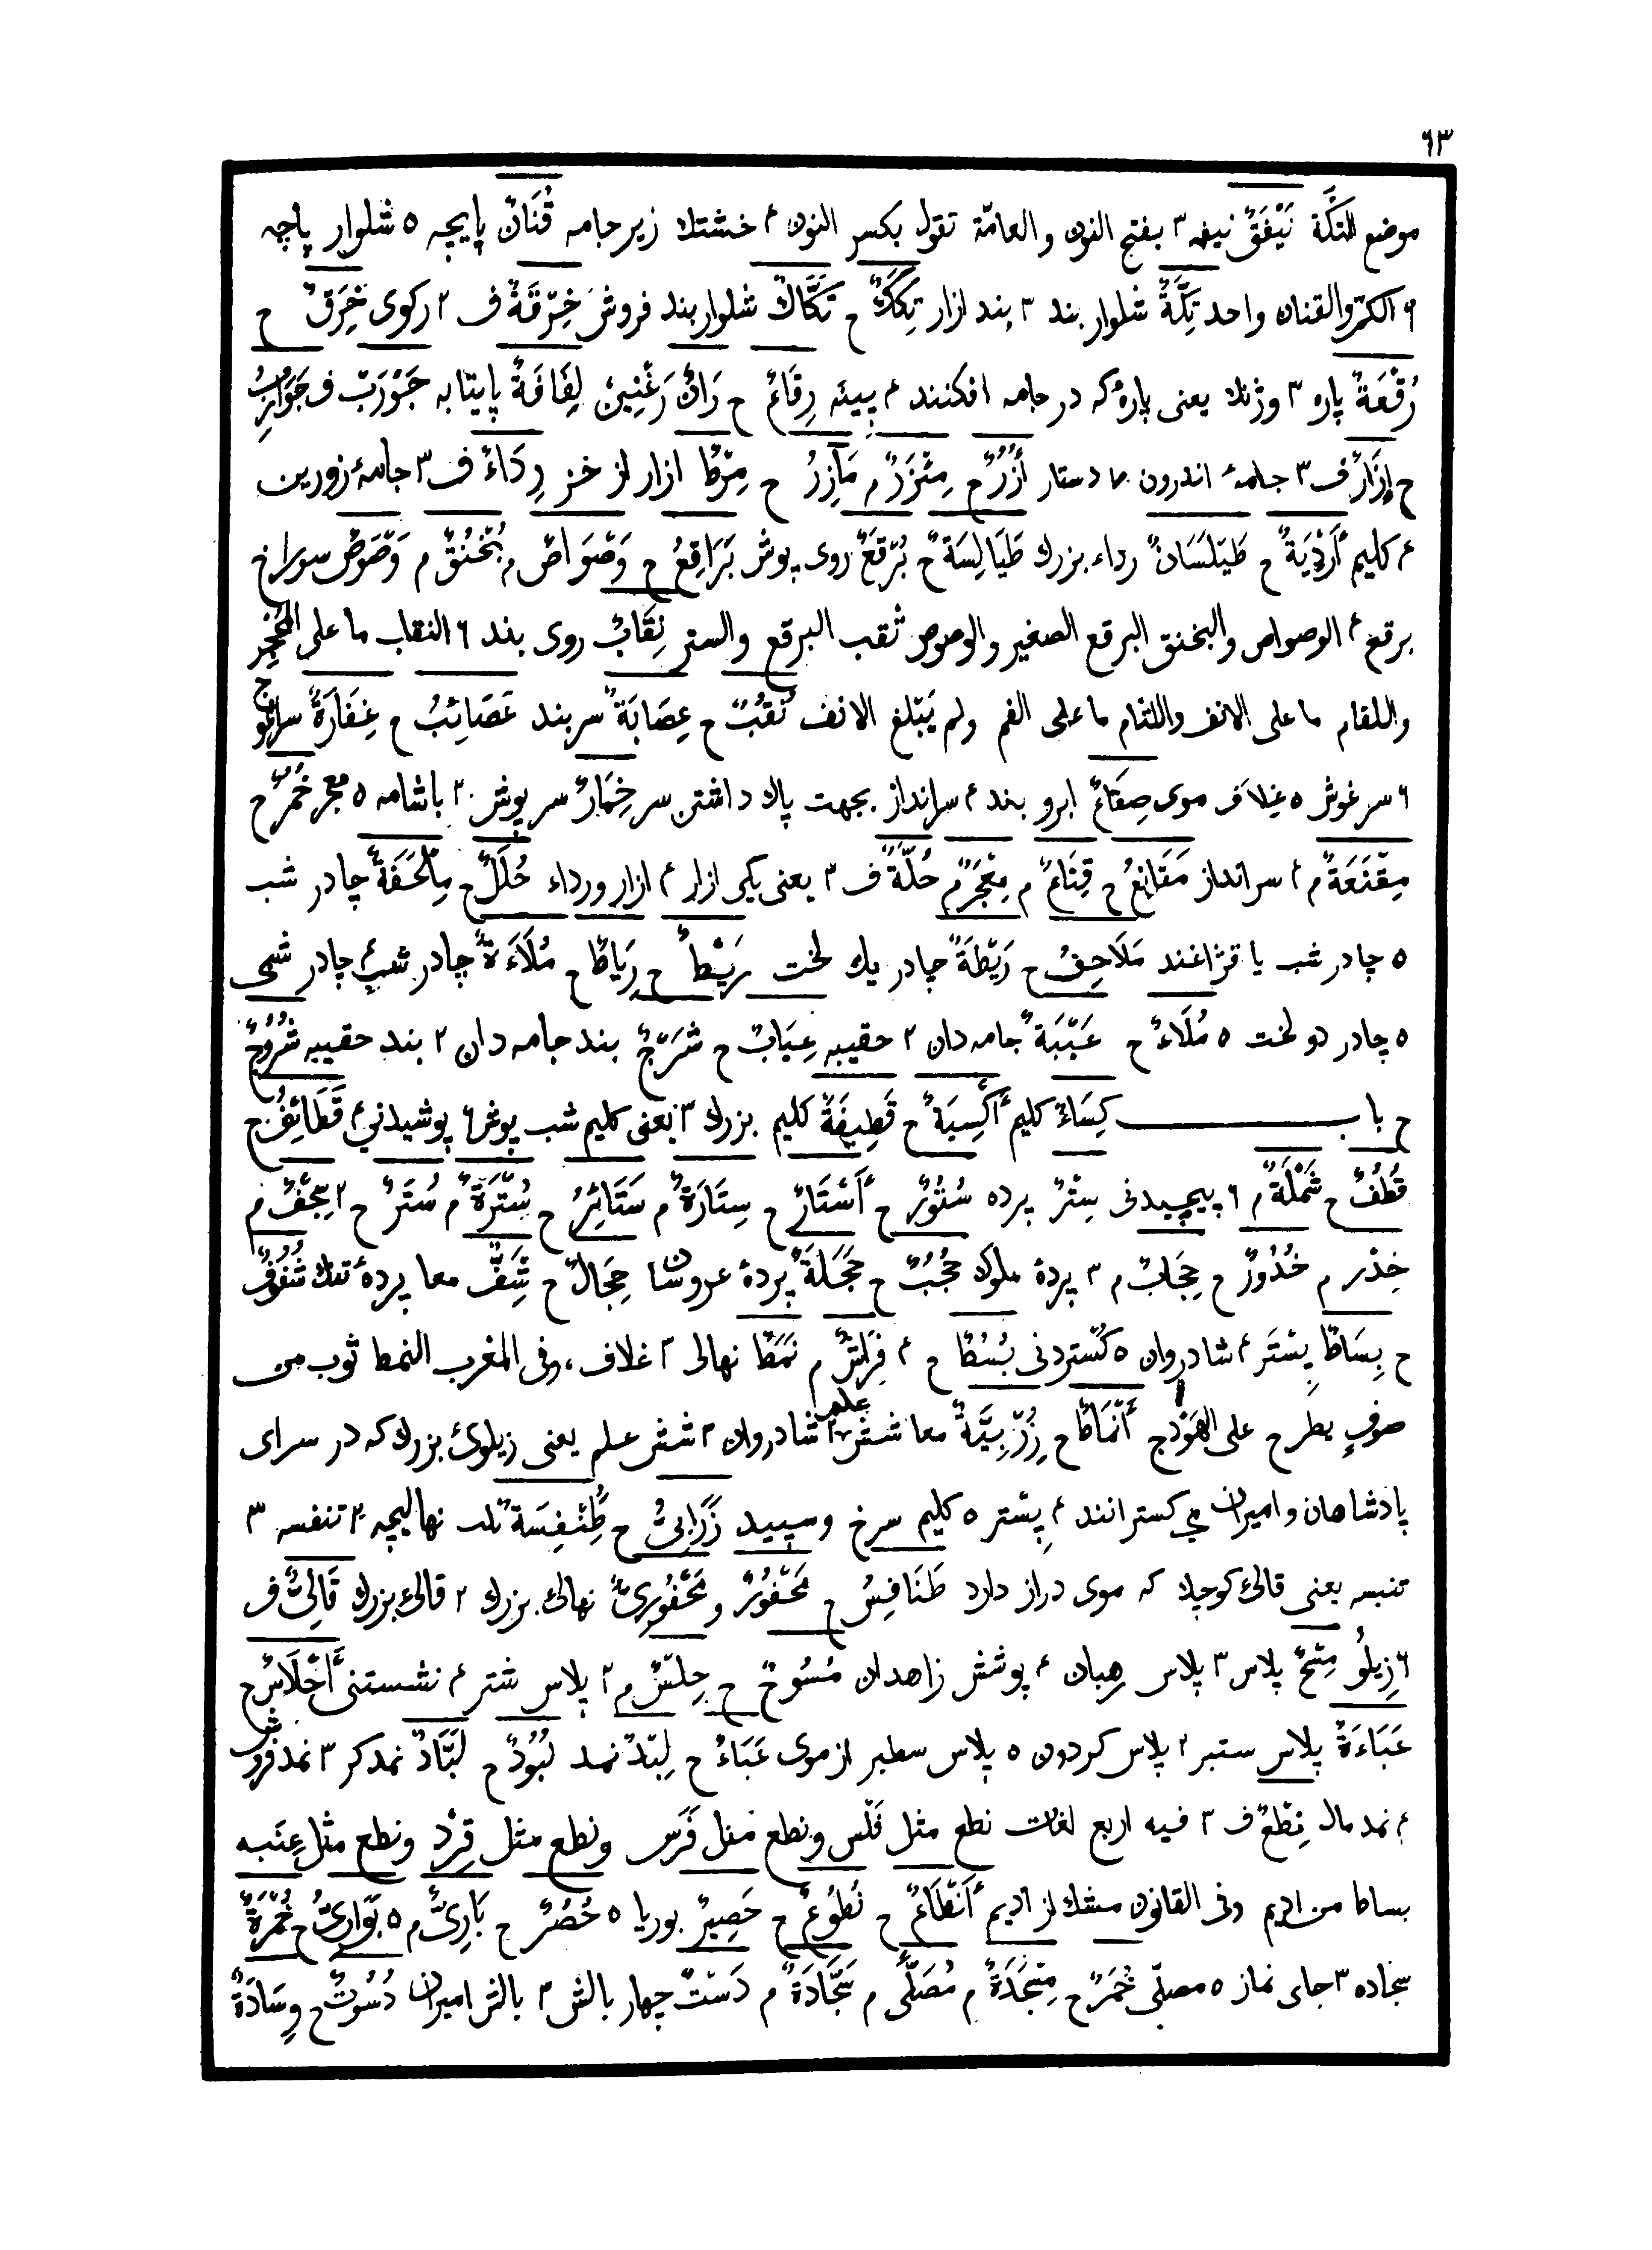 ٦٣
موضع التكّة نَيْفَقٌ نیفه ٣ بفتح النون والعامّة تقول بكسر النون ۴ خشتك زیر جامه قُنَانٌ پایچه ۵ شلوار پاچه
۶ الكمّ والقنان واحد تِكَّةٌ شلوار بند ٣ بند ازار تِكَكٌ ح تَكَّاكٌ شلوار بند فروش خِرْقَةٌ ف ٢ رکوی خِرَقٌ ح
رُقْعَةٌ پاره ٣ وژنك یعنی پارهٔ که در جامه افکنند ۴ پینه رِقَاعٌ ح رَانٌ رَغْنِينٌ لِفَافَةٌ پایتابه جَوْرَبٌ ف جَوَارِبُ
ح إِزَارٌ ف ٣ جامهٔ اندرون ٧ دستار أُزُرٌ ح مِئْزَرٌ م مَآزِرُ ح مِرْطٌ ازار از خز رِدَاءٌ ف ٣ جامهٔ زورین
۴ کلیم أَرْدِيَةٌ ح طَيْلَسَانٌ رداء بزرك طَيَالِسَةٌ ح بُرْقَعٌ روی پوش بَرَاقِعُ ح وَصْوَاصٌ م بُخْنُقٌ م وَصْوَصٌ سوراخ
برقع ۴ الوصواص والبخنق البرقع الصغیر والوصوص ثقب البرقع والستر نِقَابٌ روی بند ۶ النقاب ما علی المَحْجِرِ
واللفام ما علی الانف واللثام ما علی الفم ولم یَبْلغ الانف نُقُبٌ ح عِصَابَةٌ سربند عَصَائِبُ ح غِفَارَةٌ
۶ سر غوش ۵ غلاف موی صِقَاعٌ ابرو بند ۴ سرانداز بجهت پاك داشتن سر خِمَارٌ سر پوش ٢ باشامه ۵ معجر خُمُرٌ ح
مِقْنَعَةٌ م ۴ سرانداز مَقَانِعُ ح قِنَاعٌ م مِعْجَرٌ م حُلَّةٌ ف ٣ یعنی یکی ازار ۴ ازار ورداء حُلَلٌ ح مِلْحَفَةٌ چادر شب
۵ چادر شب یا قزاغند مَلَاحِفُ ح رَيْطَةٌ چادر یك لخت رَيْطٌ ح رِيَاطٌ ح مُلَاءَةٌ چادر شب ۴ چادر شبی
۵ چادر دو لخت ۵ مُلَاءٌ ح عَيْبَةٌ جامه دان ٢ حقیبه عِيَابٌ ح شَرَجٌ بند جامه دان ٢ بند حقیبه شُرُوجٌ
ح باب كِسَاءٌ کلیم أَكْسِيَةٌ ح قَطِيفَةٌ کلیم بزرك ٣ یعنی کلیم شب پوش ۶ پوشیدنی ۴ قَطَائِفُ ح
قُطُفٌ ح شَمْلَةٌ م ۶ پیچیدنی سِتْرٌ پرده سُتُورٌ ح أَسْتَارٌ ح سِتَارَةٌ م سَتَائِرُ ح سُتْرَةٌ م سُتَرٌ ح ٢ سِجْفٌ م
خِدْرٌ م خُدُورٌ ح حِجَابٌ م ٣ پردهٔ ملوك حُجُبٌ ح حَجَلَةٌ پردهٔ عروسان حِجَالٌ ح شِفٌّ معا پردهٔ تنك شُفُوفٌ
ح بِسَاطٌ بِسْتَر ۴ شادروان ۵ گستردنی بُسُطٌ ح ۴ فِرَاشٌ م نَمَطٌ نهالی ٢ غلاف، وفی المغرب النمط ثوب من
صوفٍ یطرح علی الهَوْدج أَنْمَاطٌ ح زُرْبِيَّةٌ معا شادروان ٣ شش علم یعنی زیلوی بزرك که در سرای
پادشاهان و امیران می کسترانند ۴ پِسْتر ۵ کلیم سرخ و سپید زَرَابِيُّ ح طُنْفِسَةٌ نهالیچه ٢ تنفسه ٣
تنبسه یعنی قالی کوچك که موی دراز دارد طَنَافِسُ ح مَحْفُورٌ و مَحْفُورِيٌّ نهالی بزرك ٢ قالی بزرك قَالِيٌّ ف
۶ زِیلُو مِسْحٌ پلاس ٣ پلاس رهبان ۴ پوشش زاهدان مُسُوحٌ ح حِلْسٌ م ٢ پلاس شتر ۴ نشستنی أَحْلَاسٌ ح
عَبَاءَةٌ پلاس ستبر ٢ پلاس کردون ۵ پلاس سطبر از موی عَبَاءٌ ح لِبْدٌ نمد لُبُودٌ ح لَبَّادٌ نمد کر ٣ نمد فروش
۴ نمد مال نِطْعٌ ف ٣ فیه اربع لغات نطع مثل فَلْس ونطع مثل فَرَس ونطع مثل قِرْد ونطع مثل عِنَب
بساط من ادیم وفی القانون از ادیم أَنْطَاعٌ ح نُطُوعٌ ح حَصِيرٌ بوریا ۵ حُصُرٌ ح بَارِيٌّ م ۵ بَوَارِيُّ ح خُمْرَةٌ
سجاده ٣ جای نماز ۵ مصلّی خُمَرٌ ح مِسْجَدَةٌ م مُصَلًّى م سَجَّادَةٌ م دَسْتٌ چهار بالش ٣ بالش امیران دُسُوتٌ ح وِسَادَةٌ